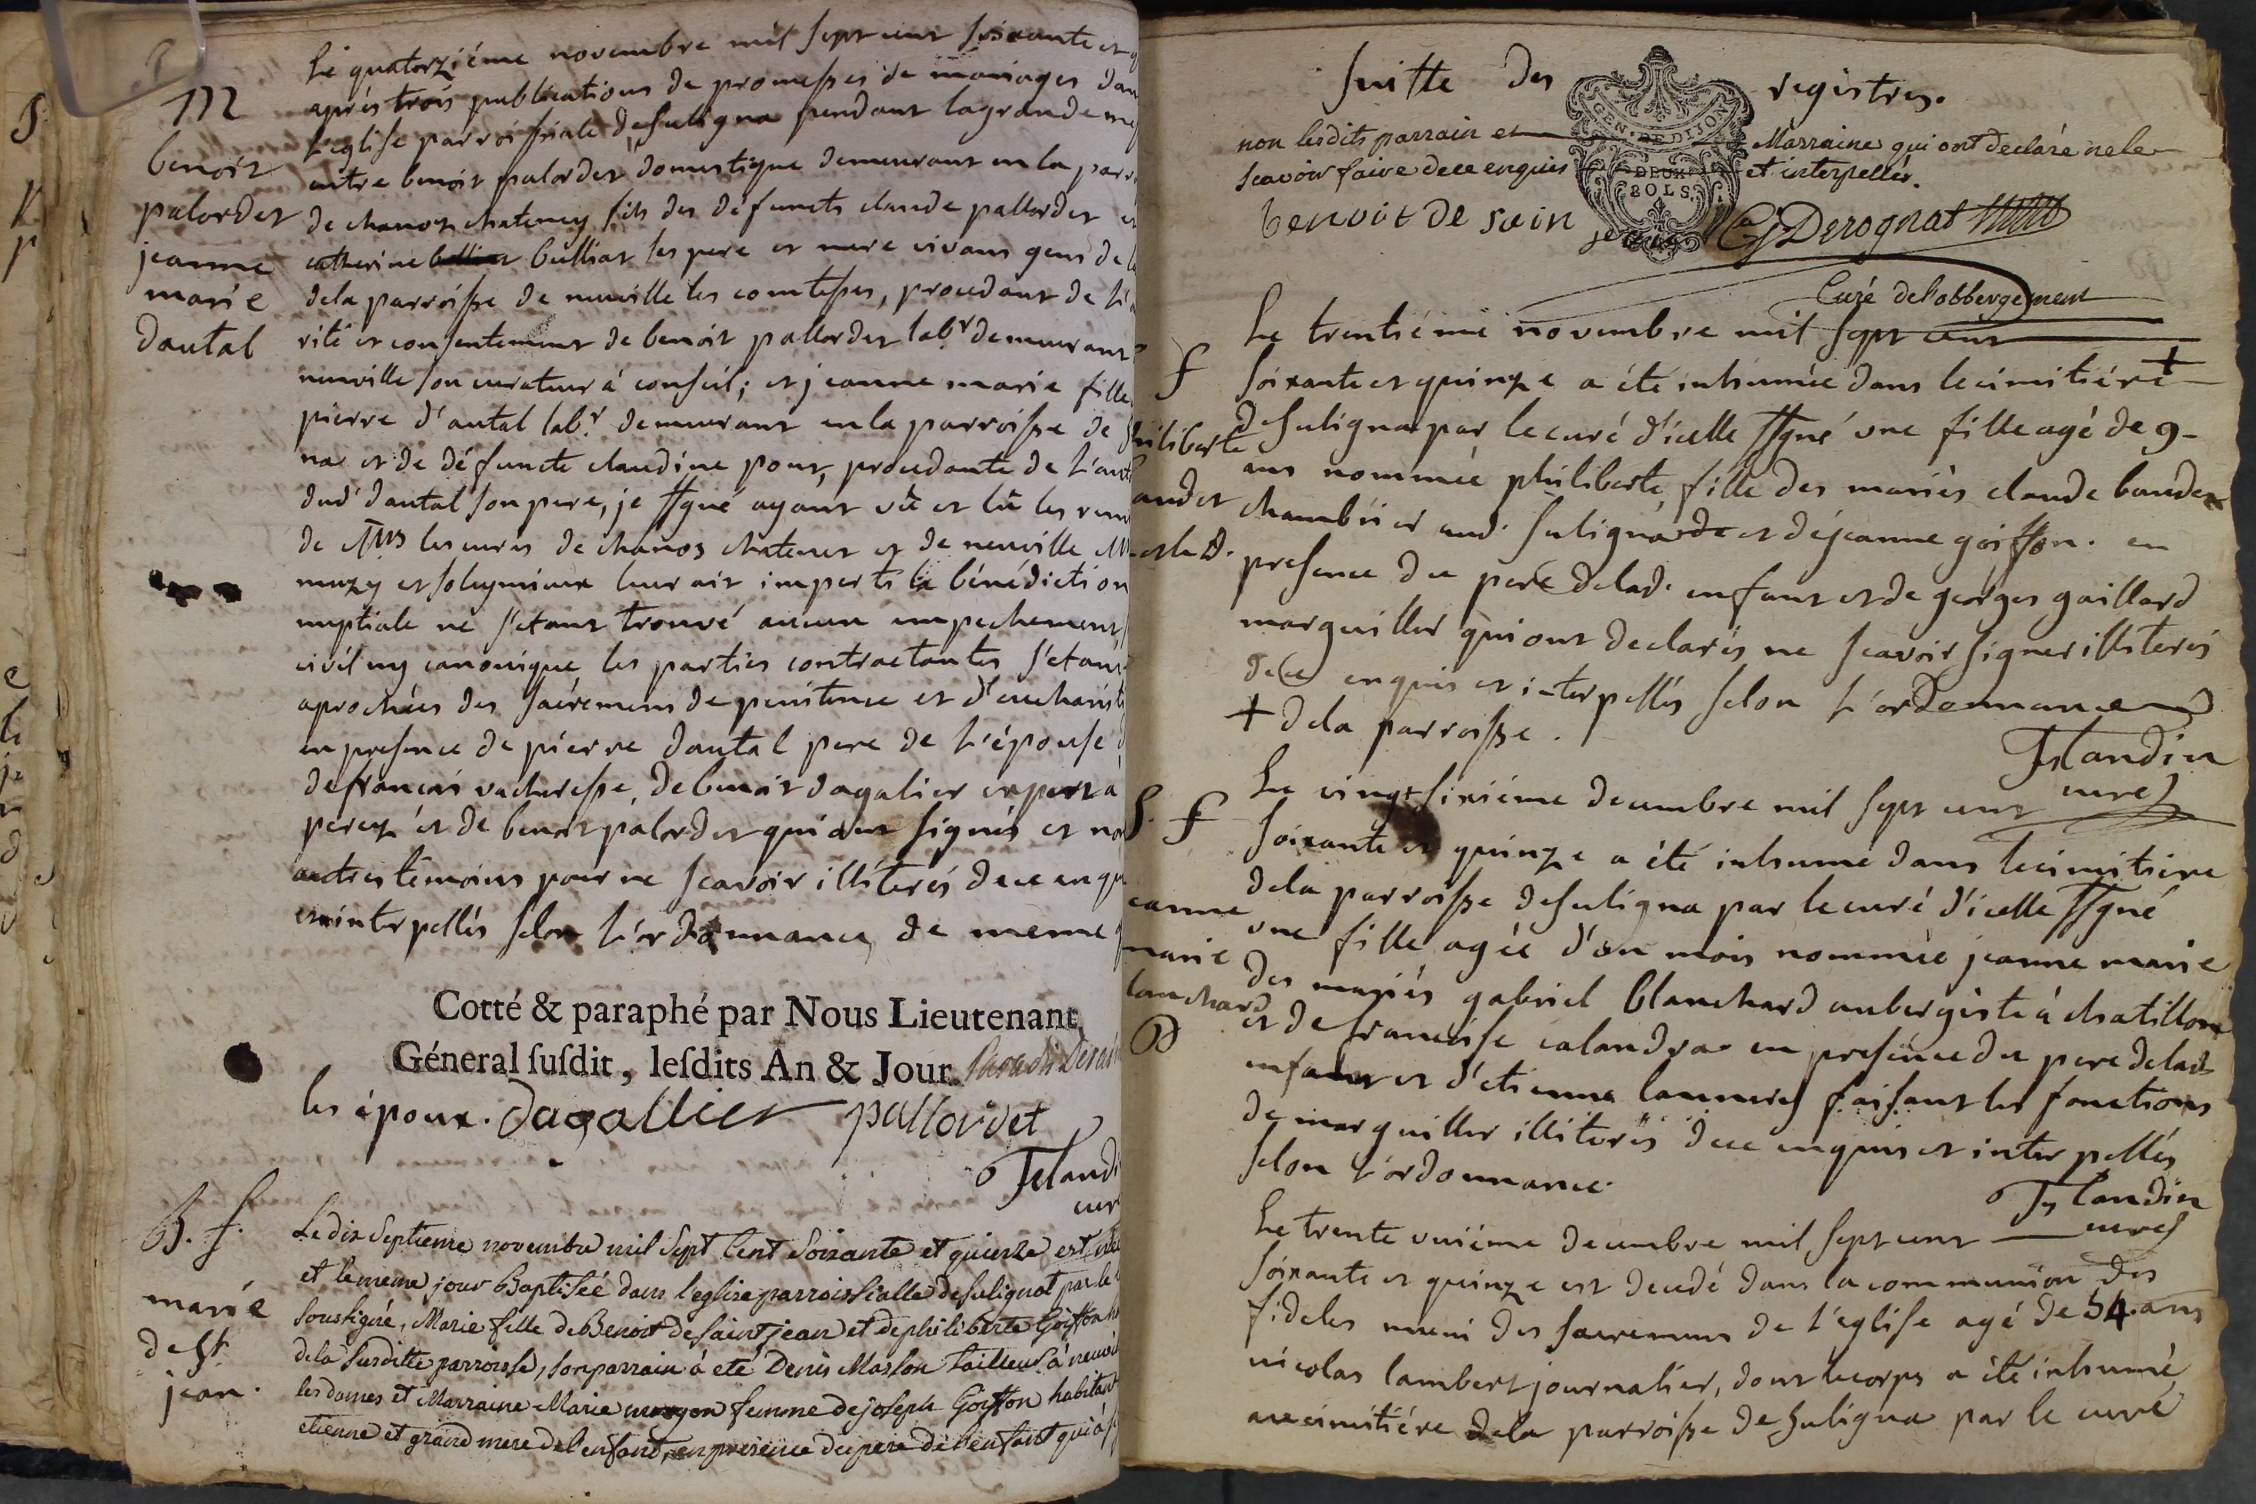 M
benoit
palordet
jeanne
marie
dautal
Le quatorziéme novembre mil sept cent soixante et
aprés trois publications de promesses de mariages dan
L'eglise parroissiale de suligna pendant la grande me
entre benoit palordet domestique demeurant en la parr
de chanoz chatenay fils des défuncts claude pallordet et
catherine bulliat les pere et mere vivans gens de
dela parroisse de neuville les comtesses, procedant de L'a
rité et consentement de benoit pallordet lab.r demeurant
neuville son curateur à conseil; et jeanne marie fille
pierre d'autal lab.r demeurant en la parroisse de
na et de défuncte claudine pour, procedante de L'aut
dud' dautal son pere, je ssgné ayant vû et lû les rem
de Mrs les cures de chanoz chatenet et de neuville
muzy et soleymieux leur ait imparti la bénédiction
nuptiale ne s'etant trouvé aucun empechement
civil ny canonique les parties contractantes s'etant
aprochées des sacremens de penitence et d'eucharist
en presence de pierre dautal pere de L'épouse
de françois vacheresse, de benoit dagalier expert a
perex et de benoit palordet qui ont signés et non
autres temoins pour ne scavoir illiterés de ce enqu
et interpellés selon L'ordonnance, de meme
Cotté & paraphé par Nous Lieutenant
Géneral susdit, lesdits An & Jour.
les époux. Dagallier pallordet
Flandi
cur
B. f.
marie
de st
jean.
Le dix Septieme novembre mil Sept Cent Soixante et quinze est
et le meme jour Baptisée dans l'eglise parroissialle de sulignat par le
Soussigné, Marie fille de Benoit de saint jean et de philiberte Goiffon
de la Susditte parroisse, son parrain à eté Denis Masson tailleur à neuvil
les dames et Marraine Marie femme de joseph Goiffon habitant
etienne et grand mere de l'enfant, en presence du pere de l'enfant qui à s
suitte des registres.
GEN. DE DIJON
DEUX
SOLS.
non lesdits parrain et Marraine qui ont declaré ne le
scavoir faire de ce enquis et interpellés.
benoit de sain jean Derognat
Curé de l'abbergement
f
philiberte
baudet
Le trentiéme novembre mil sept cent
soixante et quinze a été inhumée dans le cimitiére +
de suligna par le curé d'icelle ssgné une fille agé de 9
ans nommée philiberte, fille des mariés claude baudet
chambrier aud. suligna et de jeanne goiffon. en
presence du pere de lad. enfant et de georges gaillard
marguillier qui ont declarés ne scavoir signer illiterés
de ce enquis et interpellés selon L'ordonnance
+ de la parroisse.
Flandin
curé
S. f
jeanne
marie
blanchard
Le vingt sixiéme decembre mil sept cent
soixante et quinze a été inhumé dans le cimitiere
de la parroisse de suligna par le curé d'icelle ssgné
une fille agée d'un mois nommée jeanne marie
des mariés gabriel blanchard aubergiste à chatillon
et de francoise calandra en presence du pere de lad
enfant et d'etienne faisant les fonctions
de marguillier illiterés de ce enquis et interpellés
selon L'ordonnance.
Flandin
curé
Le trente uniéme decembre mil sept cent
soixante et quinze est decedé dans la communion des
fideles muni des sacremens de L'église agé de 54 ans
nicolas lambert journalier, dont le corps a été inhumé
au cimitiére de la parroisse de suligna par le curé